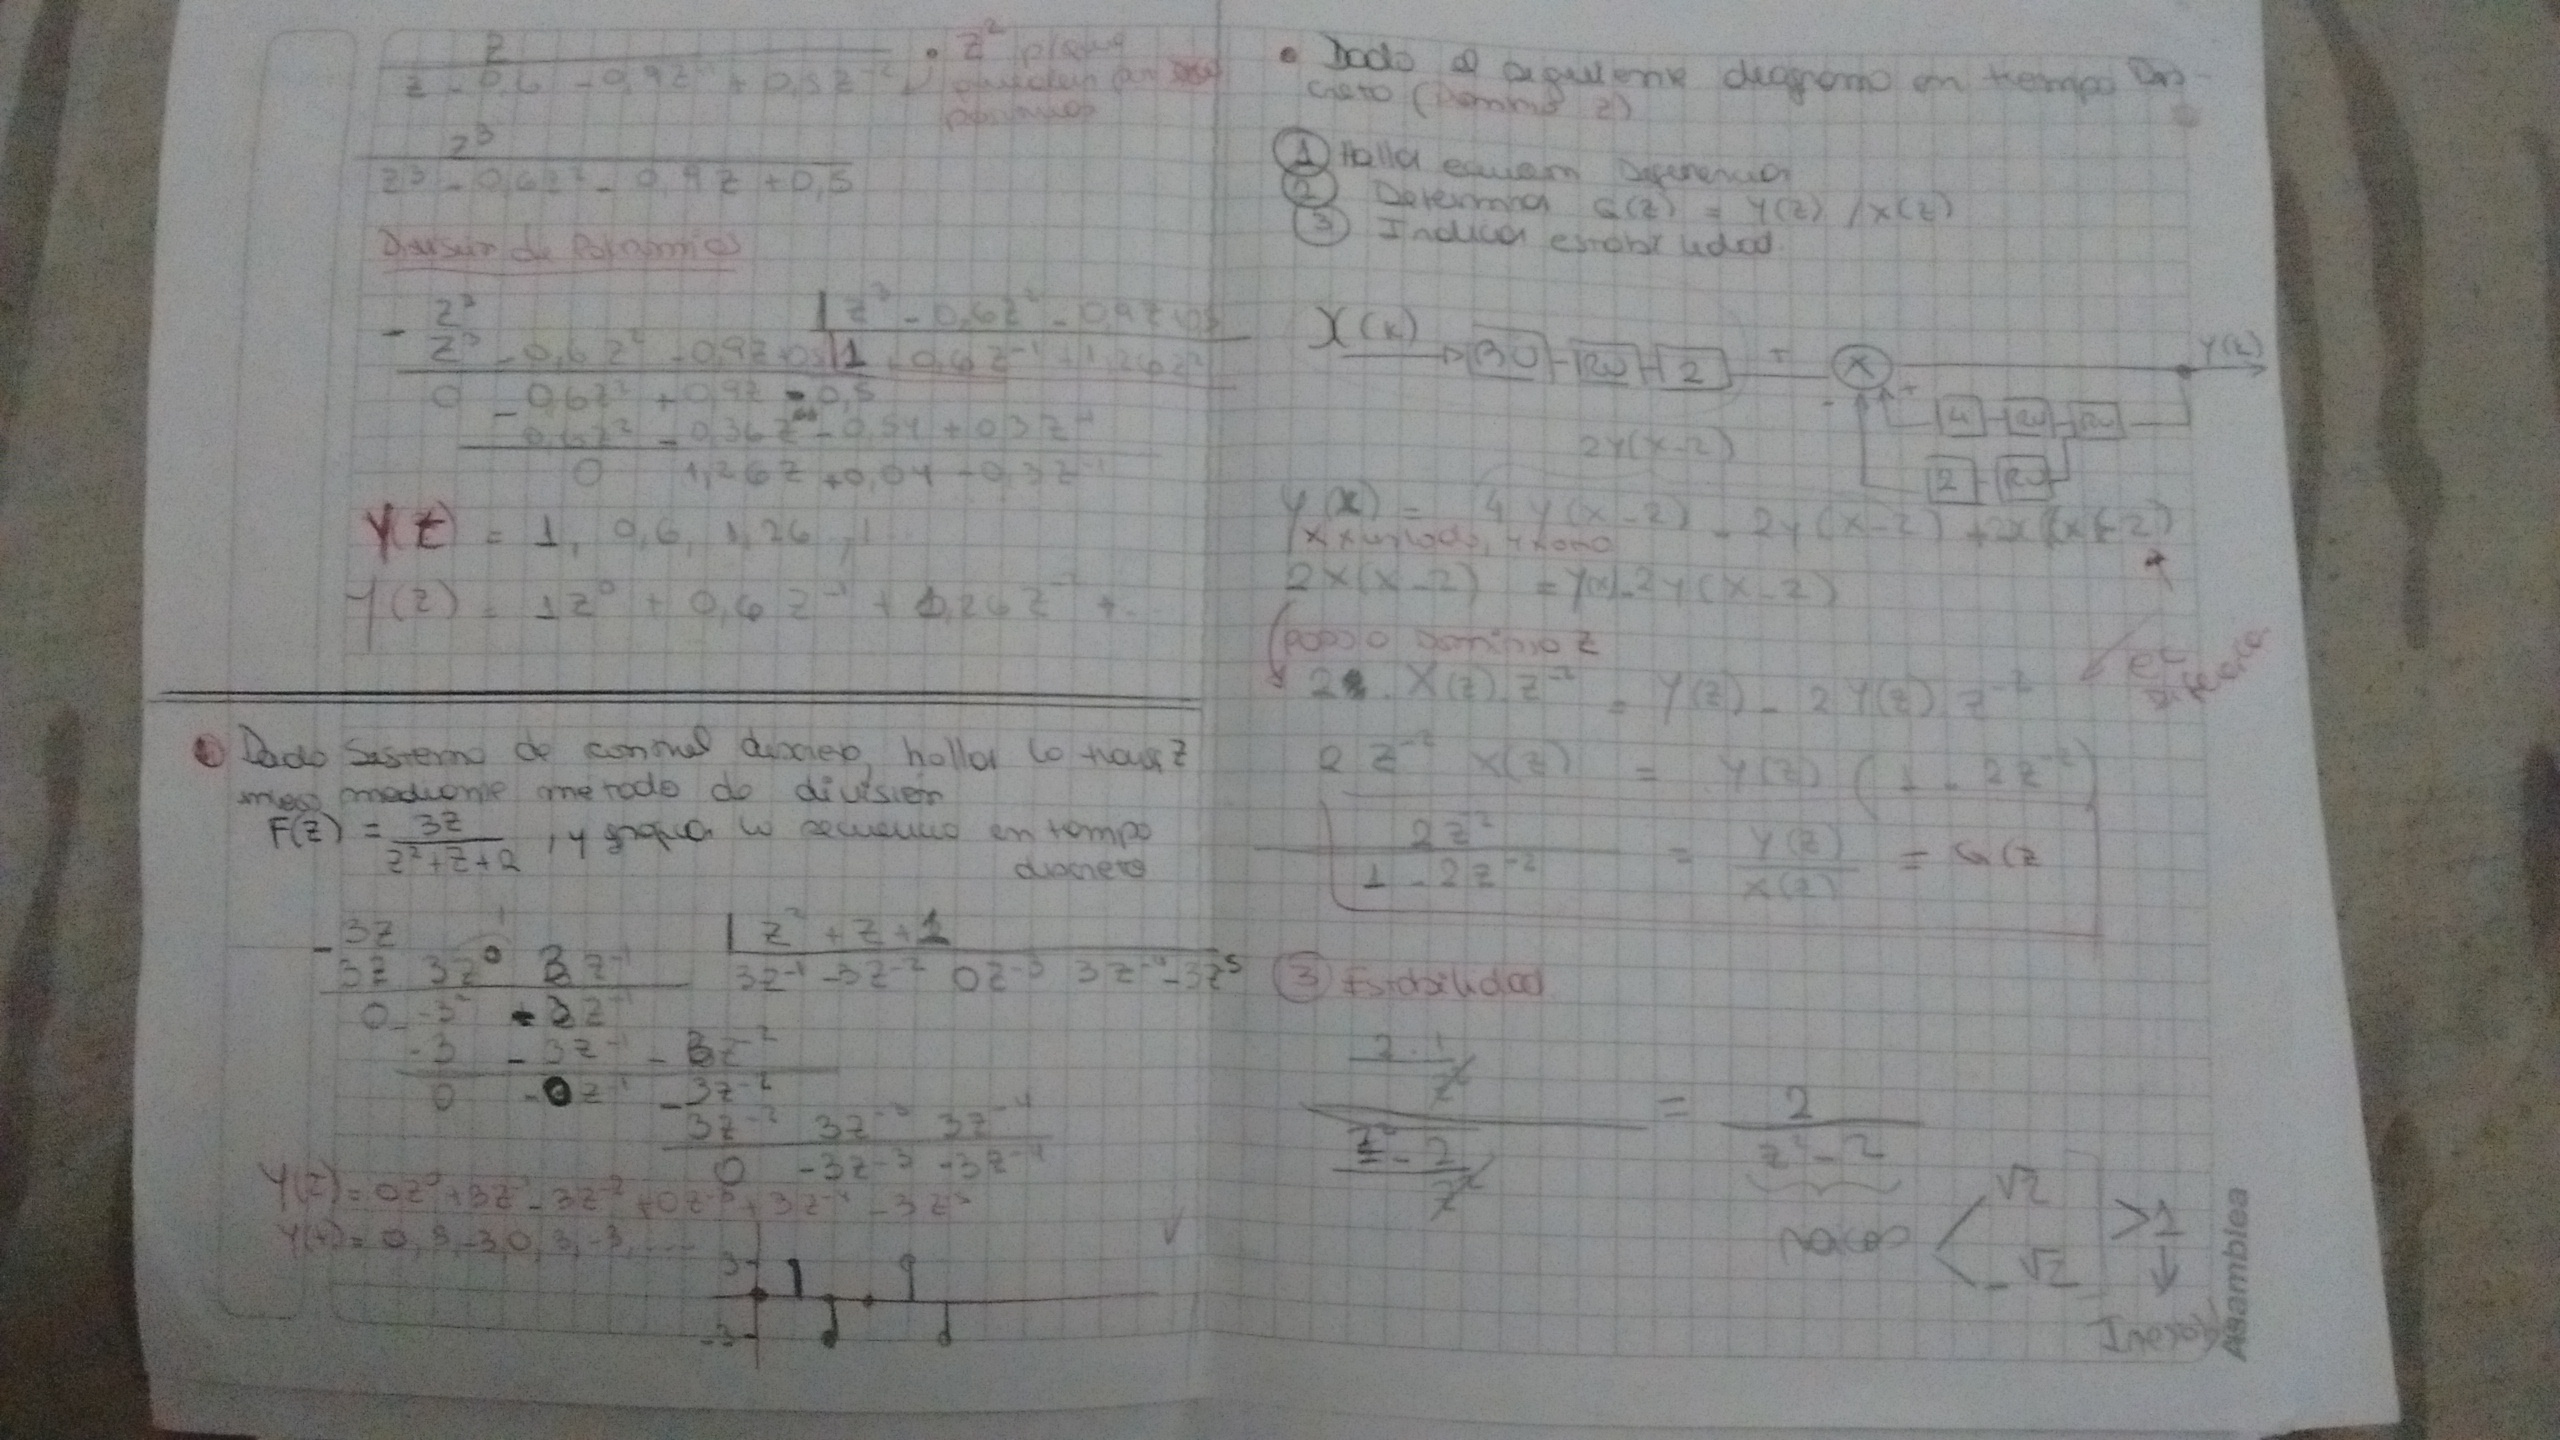 z
z - 0,6 - 0,9z⁻¹ + 0,5z⁻²
• z² p/que
z³
z³ - 0,6z² - 0,9z + 0,5
División de Polinomios
- z³ | z³ - 0,6z² - 0,9z
z³ - 0,6z² - 0,9z 0,5 1 + 0,6z⁻¹ + 1,26z⁻²
0 0,6z² + 0,9z - 0,5
- 0,6z² - 0,36z - 0,54 + 0,3z⁻¹
0 1,26z + 0,04 - 0,3z⁻¹
Y(z) = 1, 0,6, 1,26,
Y(z) = 1z⁰ + 0,6z⁻¹ + 1,26z⁻² + ..
Dado Sistema de control discreto, hallar la transz
mediante metodo de división
F(z) = 3z / z²+z+2 , y grafica la secuencia en tiempo
discreto
- 3z | z² + z + 1
3z 3z⁰ 3z⁻¹ 3z⁻¹ -3z⁻² 0z⁻³ 3z⁻⁴ -3z⁵
0 -3z⁰ - 3z⁻¹
-3 - 3z⁻¹ - 3z⁻²
0 - 0z⁻¹ - 3z⁻²
3z⁻² 3z⁻³ 3z⁻⁴
0 -3z⁻³ -3z⁻⁴
Y(z) = 0z⁰ + 3z⁻¹ - 3z⁻² + 0z⁻³ + 3z⁻⁴ - 3z⁻⁵
Y(t) = 0, 3, -3, 0, 3, -3, ....
3
-3
• Dado el siguiente diagrama en tiempo Dis-
creto (Dominio z)
① Halla ecuacion Diferencia
② Determina G(z) = Y(z) / X(z)
③ Indicar estabilidad.
X(k) RU RU 2 + X Y(k)
- + 4 RU RU
2 RU
2Y(x-2)
Y(x) = 4Y(x-2) - 2Y(x-2) + 2x(x-2)
x x un lado, y x otro
2X(x-2) = Y(x) - 2Y(x-2)
ec
Diferencia
paso a Dominio z
2 . X(z) z⁻² = Y(z) - 2Y(z) z⁻²
2 z⁻² X(z) = Y(z) (1 - 2z⁻²)
2z⁻² / 1 - 2z⁻² = Y(z) / X(z) = G(z
③ Estabilidad
2 . 1
z²
z² - 2
z²
= 2 / z² - 2
raices √2
- √2
>1
Inestab
Asamblea